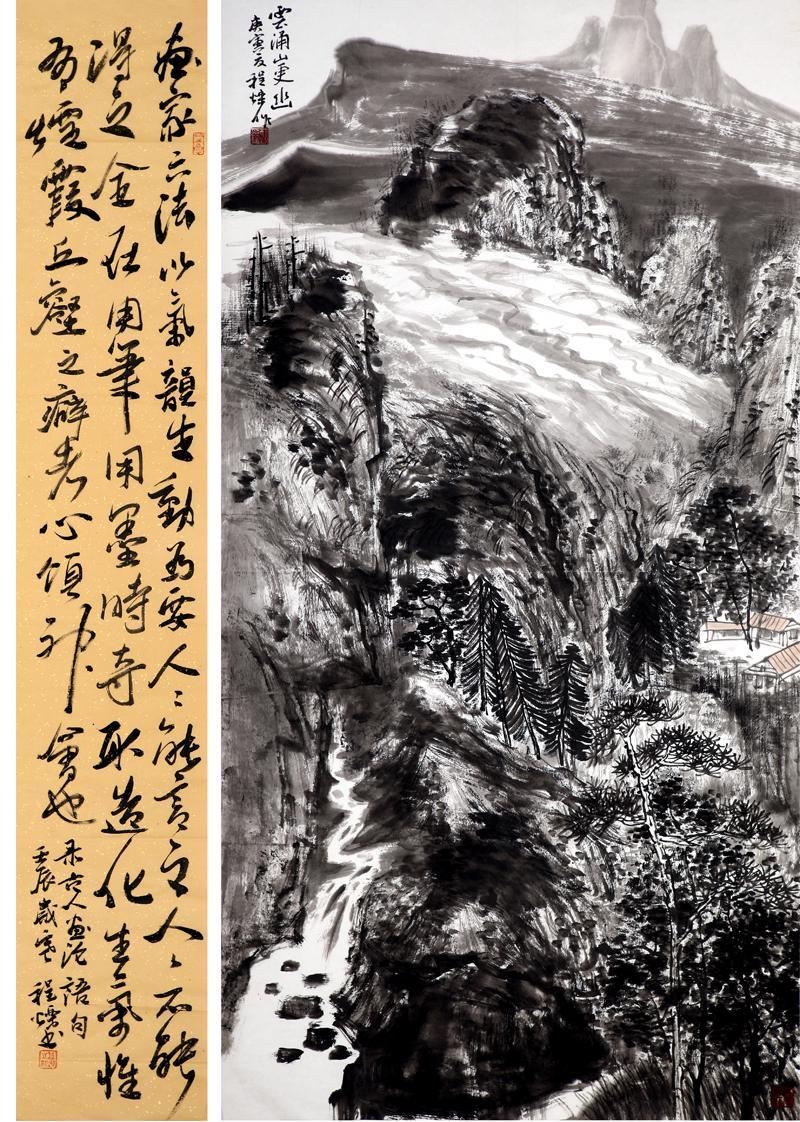 畫家六法以氣韻生動為要人〻能言之人〻不能
得之全在用筆用墨時夺取造化生氣惟
有煙霞丘壑之癖者心領神會也
录古人畫論語句
壬辰歲寒 程
雲涌山更幽
庚寅夏 程 作